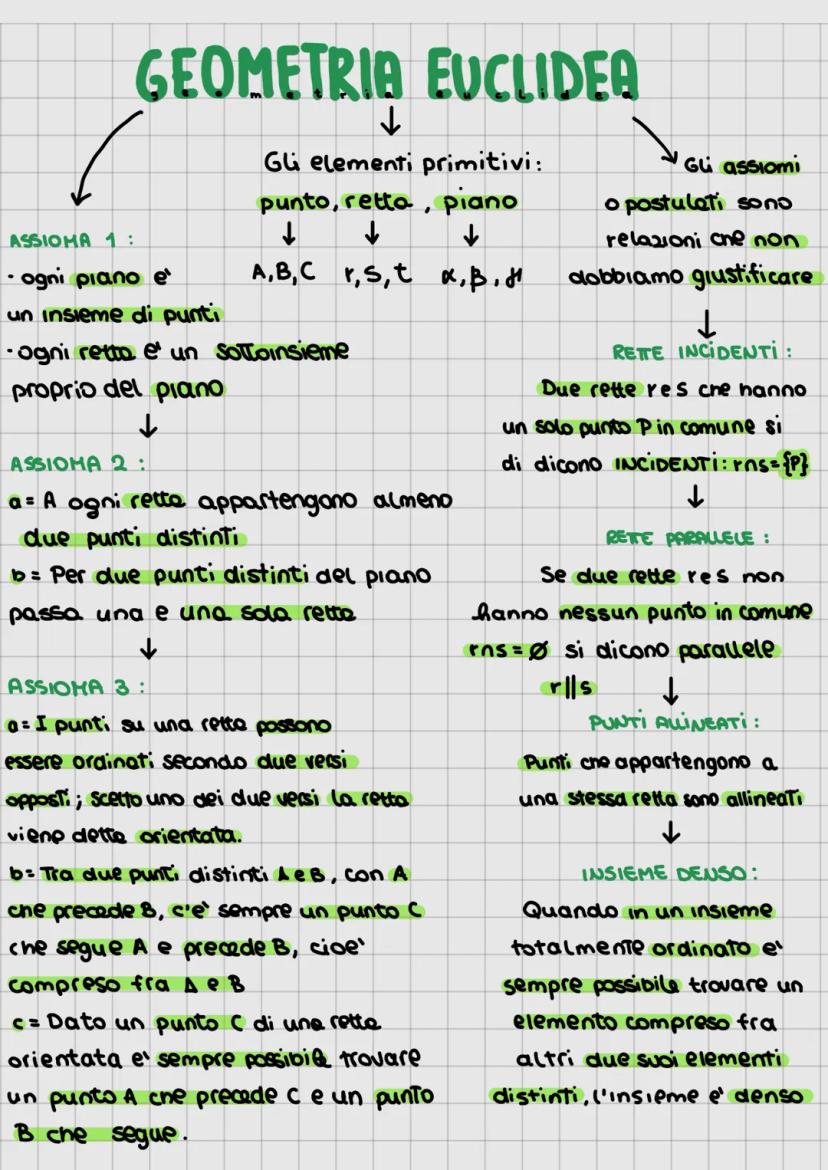 GEOMETRIA EUCLIDEA
geometria euclidea
Gli elementi primitivi:
punto, retta, piano
A,B,C r,s,t α,β,γ
ASSIOMA 1:
• ogni piano e'
un insieme di punti
• ogni retta e' un sottoinsieme
proprio del piano
ASSIOMA 2:
a= A ogni retta appartengono almeno
due punti distinti
b= Per due punti distinti del piano
passa una e una sola retta
ASSIOMA 3:
a= I punti su una retta possono
essere ordinati secondo due versi
opposti; scelto uno dei due versi la retta
viene detta orientata.
b= Tra due punti distinti A e B, con A
che precede B, c'e' sempre un punto C
che segue A e precede B, cioe'
compreso fra A e B
c= Dato un punto C di una retta
orientata e' sempre possibile trovare
un punto A che precede C e un punto
B che segue.
Gli assiomi
o postulati sono
relazioni che non
dobbiamo giustificare
RETTE INCIDENTI:
Due rette r e s che hanno
un solo punto P in comune si
di dicono INCIDENTI: r∩s={P}
RETTE PARALLELE:
Se due rette r e s non
hanno nessun punto in comune
r∩s=Ø si dicono parallele
r||s
PUNTI ALLINEATI:
Punti che appartengono a
una stessa retta sono allineati
INSIEME DENSO:
Quando in un insieme
totalmente ordinato e'
sempre possibile trovare un
elemento compreso fra
altri due suoi elementi
distinti, l'insieme e' denso